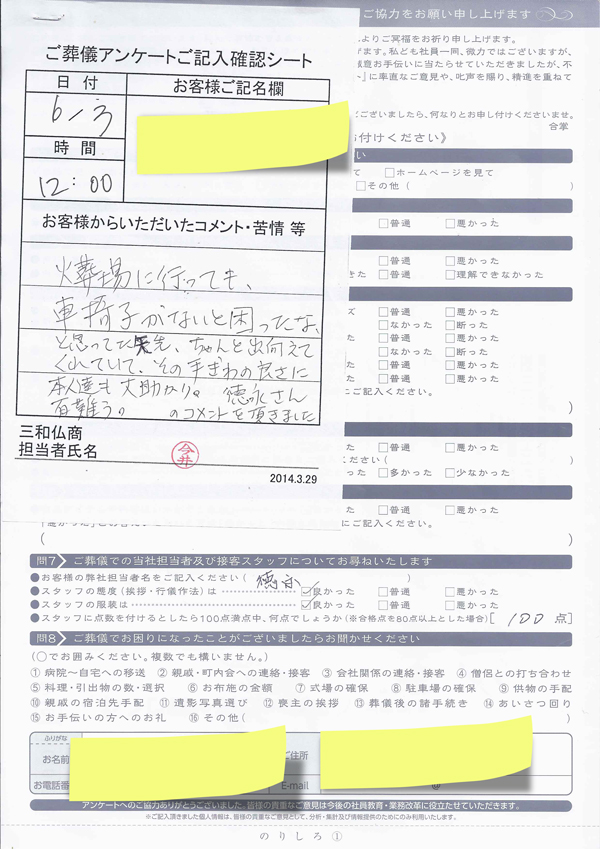 ご協力をお願い申し上げます
ご葬儀アンケートご記入確認シート
日付
お客様ご記名欄
6/3
時間
12:00
お客様からいただいたコメント・苦情 等
火葬場に行っても、
車椅子がないと困ったな、
と思ってた矢先、ちゃんと出向えて
くれていて、その手ぎわの良さに
本人達も大助かり。徳永さん
有難う。のコメントを頂きました
三和仏商
担当者氏名
今井
2014.3.29
よりご冥福をお祈り申し上げます。
ます。私ども社員一同、微力ではございますが、
誠意お手伝いに当たらせていただきましたが、不
ト」に率直なご意見や、叱声を賜り、精進を重ねて
ございましたら、何なりとお申し付けくださいませ。
合掌
お付けください》
い
て □ホームページを見て
□その他(
)
□普通 □悪かった
□普通 □悪かった
きた □普通 □理解できなかった
ズ □普通 □悪かった
□なかった □断った
□普通 □悪かった
□なかった □断った
□普通 □悪かった
□普通 □悪かった
にご記入ください。
)
□普通 □悪かった
ください(
)
った □多かった □少なかった
□普通 □悪かった
にご記入ください。
(
)
問7 ご葬儀での当社担当者及び接客スタッフについてお尋ねいたします
●お客様の弊社担当者名をご記入ください( 徳永 )
●スタッフの態度(挨拶・行儀作法)は ☑良かった □普通 □悪かった
●スタッフの服装は ☑良かった □普通 □悪かった
●スタッフに点数を付けるとしたら100点満点中、何点でしょうか(※合格点を80点以上とした場合)[ 100 点]
問8 ご葬儀でお困りになったことがございましたらお聞かせください
(○でお囲みください。複数でも構いません。)
① 病院～自宅への移送 ② 親戚・町内会への連絡・接客 ③ 会社関係の連絡・接客 ④ 僧侶との打ち合わせ
⑤ 料理・引出物の数・選択 ⑥ お布施の金額 ⑦ 式場の確保 ⑧ 駐車場の確保 ⑨ 供物の手配
⑩ 親戚の宿泊先手配 ⑪ 遺影写真選び ⑫ 喪主の挨拶 ⑬ 葬儀後の諸手続き ⑭ あいさつ回り
⑮ お手伝いの方へのお礼 ⑯ その他(
)
ふりがな
お名前
ご住所
お電話番
E-mail
@
アンケートへのご協力ありがとうございました。皆様の貴重なご意見は今後の社員教育・業務改革に役立たせていただきます。
※ご記入頂きました個人情報は、皆様の貴重なご意見として、分析・集計及び情報提供のためにのみ利用いたします。
のりしろ①